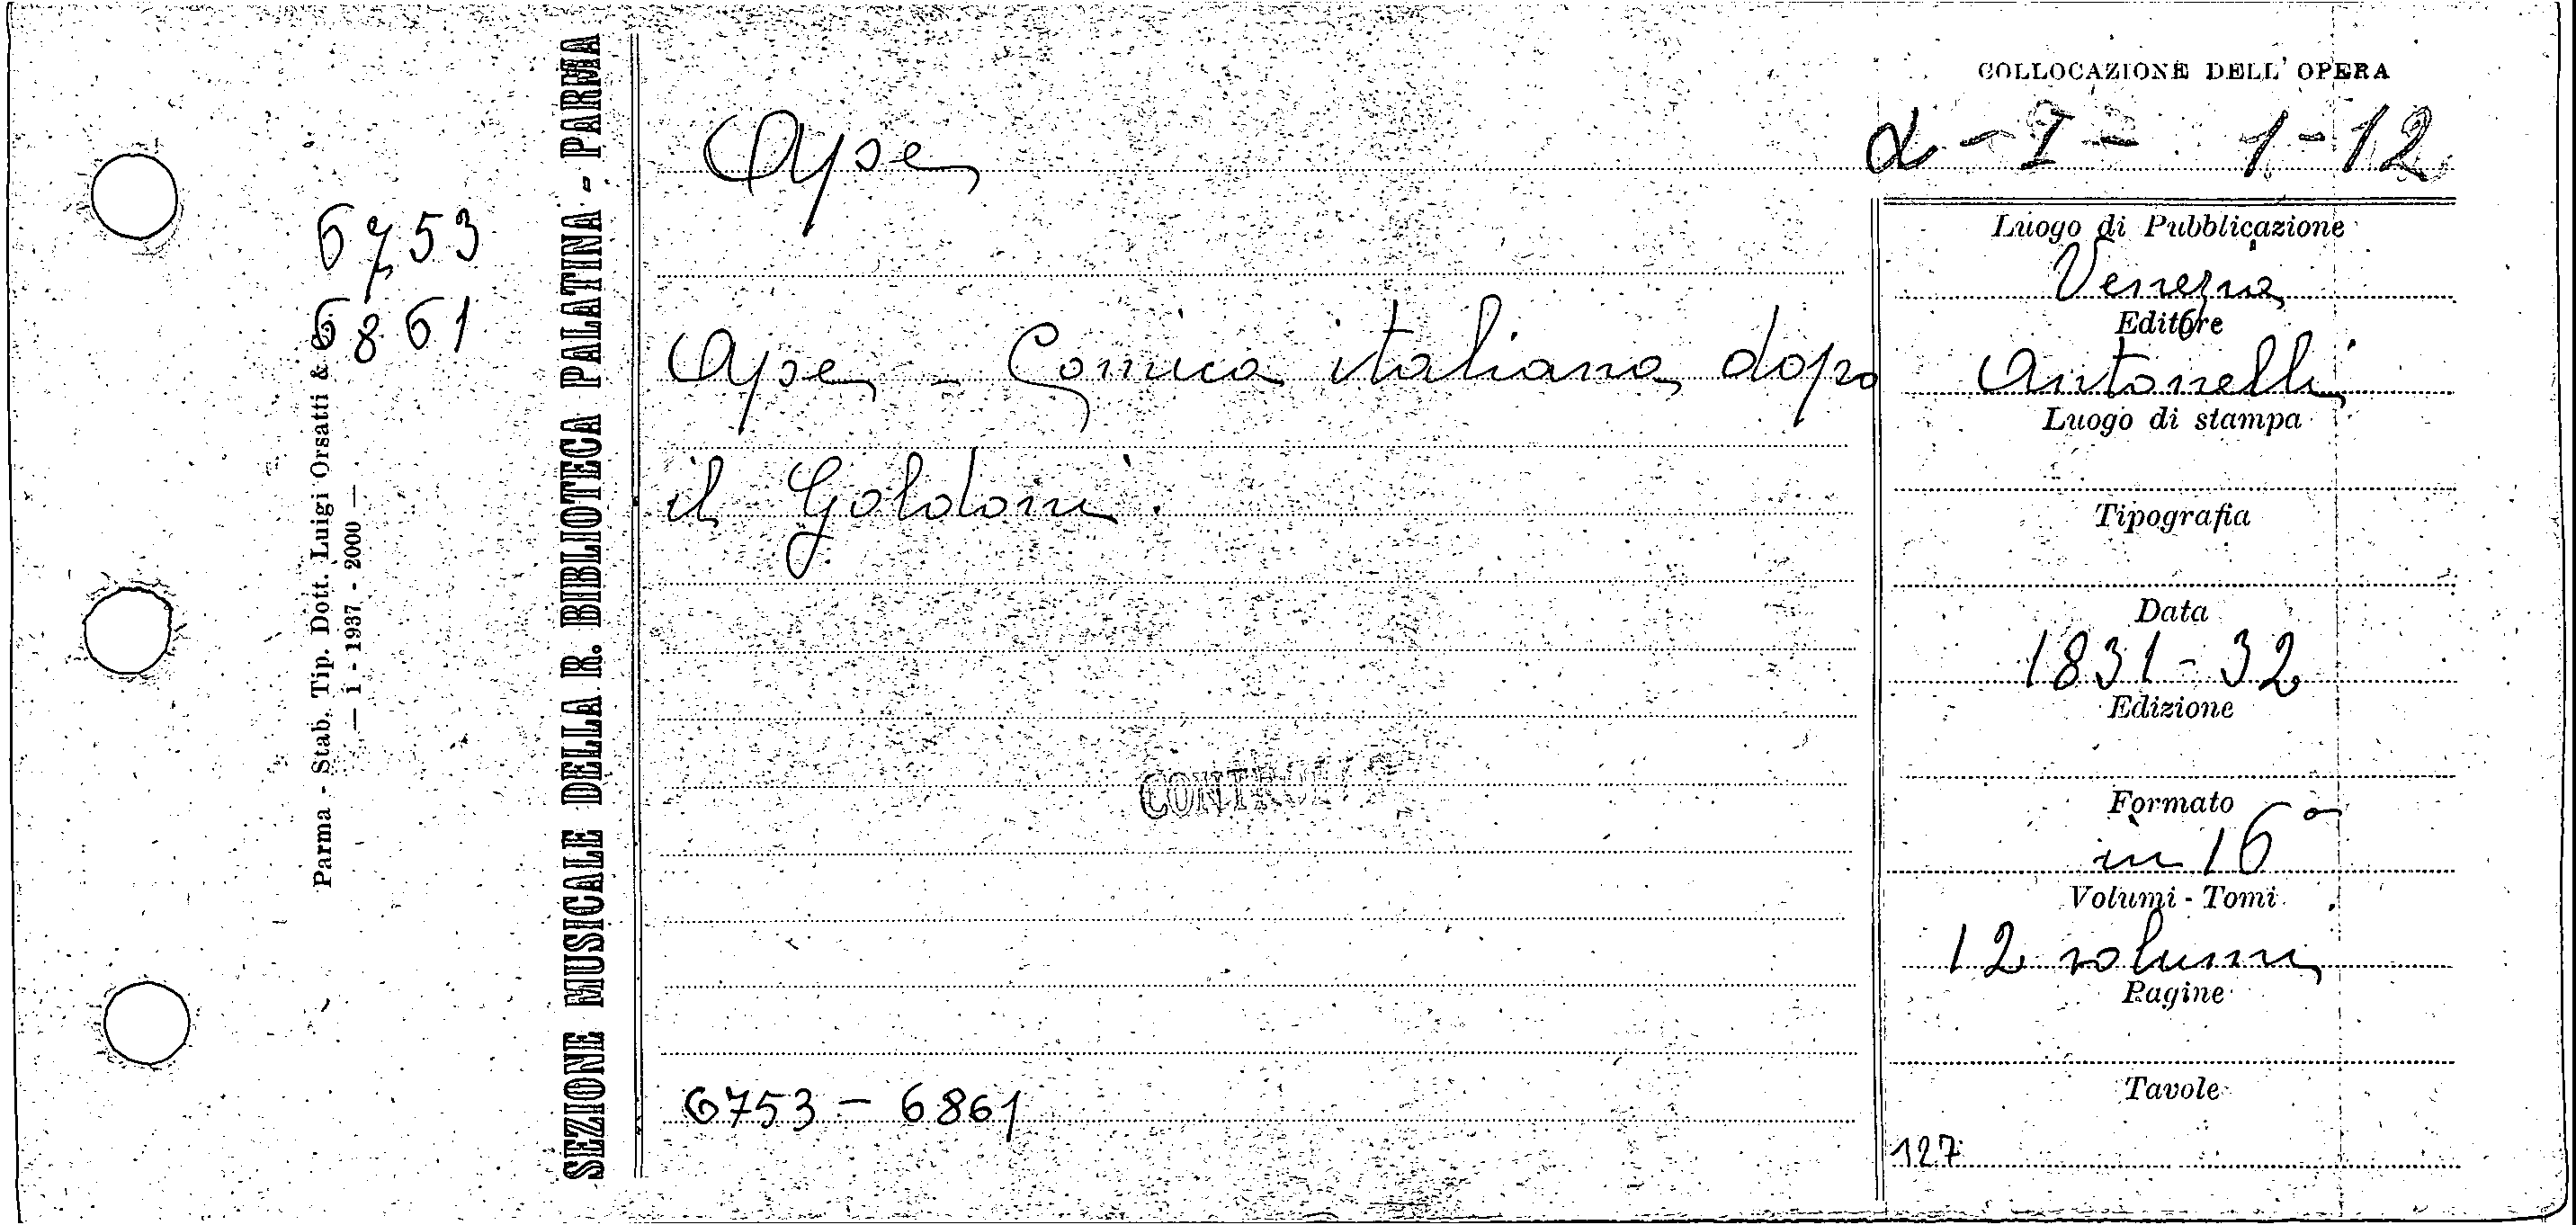 6753
6861
Parma - Stab. Tip. Dott. Luigi Orsatti &
— 1 - 1937 - 2000 —
SEZIONE MUSICALE DELLA R. BIBLIOTECA PALATINA - PARMA
Ape
Ape - Comica italiana dopo
il Goldoni.
6753 - 6861
COLLOCAZIONE DELL' OPERA
α - I - 1-12
Luogo di Pubblicazione
Venezia
Editore
Antonelli
Luogo di stampa
Tipografia
Data
1831-32
Edizione
Formato
in 16°
Volumi - Tomi
12 volumi
Pagine
Tavole
127